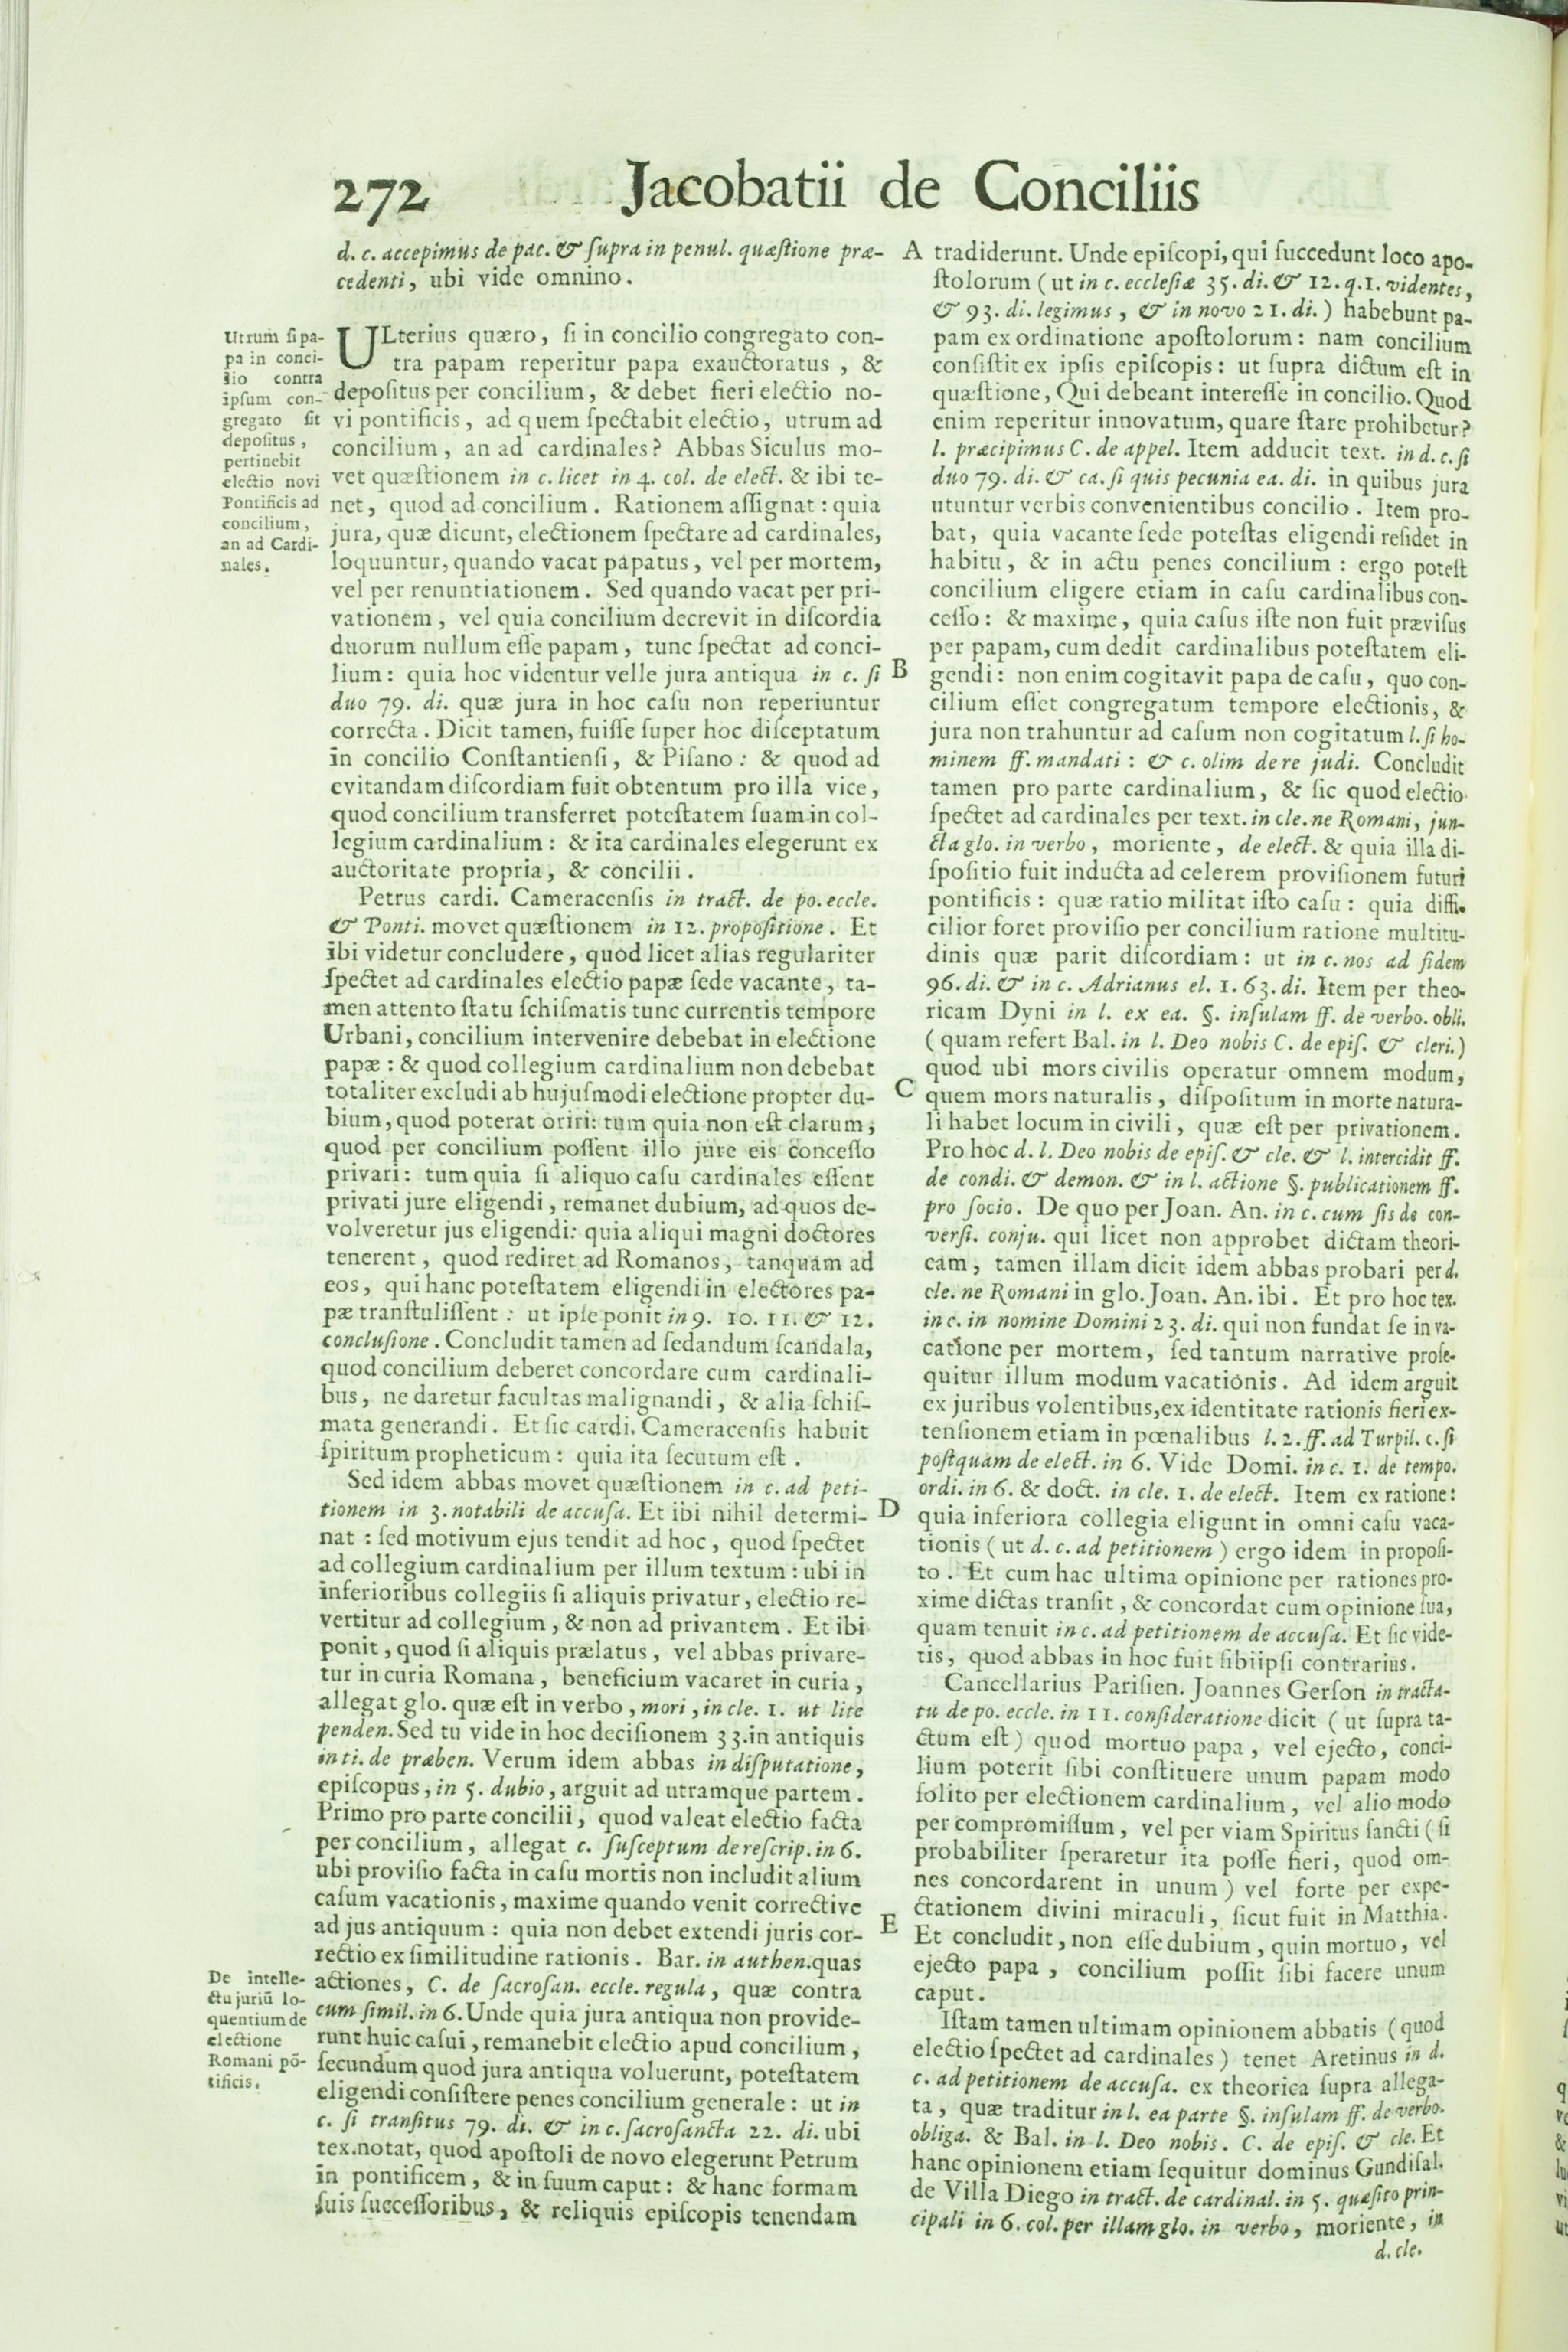 272 Jacobatii de Conciliis
d. c. accepimus de pac. & ſupra in penul. quæſtione præ-
cedenti, ubi vide omnino.
Utrum ſi pa-
pa in conci-
lio contra
ipſum con-
gregato ſit
depoſitus,
pertinebit
electio novi
Pontificis ad
concilium,
an ad Cardi-
nales.
ULterius quæro, ſi in concilio congregato con-
tra papam reperitur papa exauctoratus, &
depoſitus per concilium, & debet fieri electio no-
vi pontificis, ad quem ſpectabit electio, utrum ad
concilium, an ad cardinales? Abbas Siculus mo-
vet quæſtionem in c. licet in 4. col. de elect. & ibi te-
net, quod ad concilium. Rationem aſſignat: quia
jura, quæ dicunt, electionem ſpectare ad cardinales,
loquuntur, quando vacat papatus, vel per mortem,
vel per renuntiationem. Sed quando vacat per pri-
vationem, vel quia concilium decrevit in diſcordia
duorum nullum eſſe papam, tunc ſpectat ad conci-
lium: quia hoc videntur velle jura antiqua in c. ſi
duo 79. di. quæ jura in hoc caſu non reperiuntur
correcta. Dicit tamen, fuiſſe ſuper hoc diſceptatum
in concilio Conſtantienſi, & Piſano: & quod ad
evitandam diſcordiam fuit obtentum pro illa vice,
quod concilium transferret poteſtatem ſuam in col-
legium cardinalium: & ita cardinales elegerunt ex
auctoritate propria, & concilii.
Petrus cardi. Cameracenſis in tract. de po. eccle.
& Ponti. movet quæſtionem in 12. propoſitione. Et
ibi videtur concludere, quod licet alias regulariter
ſpectet ad cardinales electio papæ ſede vacante, ta-
men attento ſtatu ſchiſmatis tunc currentis tempore
Urbani, concilium intervenire debebat in electione
papæ: & quod collegium cardinalium non debebat
totaliter excludi ab hujuſmodi electione propter du-
bium, quod poterat oriri: tum quia non eſt clarum,
quod per concilium poſſent illo jure eis conceſſo
privari: tum quia ſi aliquo caſu cardinales eſſent
privati jure eligendi, remanet dubium, ad quos de-
volveretur jus eligendi: quia aliqui magni doctores
tenerent, quod rediret ad Romanos, tanquam ad
eos, qui hanc poteſtatem eligendi in electores pa-
pæ tranſtuliſſent: ut ipſe ponit in 9. 10. 11. & 12.
concluſione. Concludit tamen ad ſedandum ſcandala,
quod concilium deberet concordare cum cardinali-
bus, ne daretur facultas malignandi, & alia ſchiſ-
mata generandi. Et ſic cardi. Cameracenſis habuit
ſpiritum propheticum: quia ita ſecutum eſt.
Sed idem abbas movet quæſtionem in c. ad peti-
tionem in 3. notabili de accuſa. Et ibi nihil determi-
nat: ſed motivum ejus tendit ad hoc, quod ſpectet
ad collegium cardinalium per illum textum: ubi in
inferioribus collegiis ſi aliquis privatur, electio re-
vertitur ad collegium, & non ad privantem. Et ibi
ponit, quod ſi aliquis prælatus, vel abbas privare-
tur in curia Romana, beneficium vacaret in curia,
allegat glo. quæ eſt in verbo, mori, in cle. 1. ut lite
penden. Sed tu vide in hoc deciſionem 33. in antiquis
in ti. de præben. Verum idem abbas in diſputatione,
epiſcopus, in 5. dubio, arguit ad utramque partem.
Primo pro parte concilii, quod valeat electio facta
per concilium, allegat c. ſuſceptum de reſcrip. in 6.
ubi proviſio facta in caſu mortis non includit alium
caſum vacationis, maxime quando venit corrective
ad jus antiquum: quia non debet extendi juris cor-
rectio ex ſimilitudine rationis. Bar. in authen. quas
actiones, C. de ſacroſan. eccle. regula, quæ contra
cum ſimil. in 6. Unde quia jura antiqua non provide-
runt huic caſui, remanebit electio apud concilium,
ſecundum quod jura antiqua voluerunt, poteſtatem
eligendi conſiſtere penes concilium generale: ut in
c. ſi tranſitus 79. di. & in c. ſacroſancta 22. di. ubi
tex. notat, quod apoſtoli de novo elegerunt Petrum
in pontificem, & in ſuum caput: & hanc formam
ſuis ſucceſſoribus, & reliquis epiſcopis tenendam
De intelle-
ctu juriū lo-
quentium de
electione
Romani pō-
tificis.
A
B
C
D
E
tradiderunt. Unde epiſcopi, qui ſuccedunt loco apo-
ſtolorum (ut in c. eccleſiæ 35. di. & 12. q. 1. videntes,
& 93. di. legimus, & in novo 21. di.) habebunt pa-
pam ex ordinatione apoſtolorum: nam concilium
conſiſtit ex ipſis epiſcopis: ut ſupra dictum eſt in
quæſtione, Qui debeant intereſſe in concilio. Quod
enim reperitur innovatum, quare ſtare prohibetur?
l. præcipimus C. de appel. Item adducit text. in d. c. ſi
duo 79. di. & ca. ſi quis pecunia ea. di. in quibus jura
utuntur verbis convenientibus concilio. Item pro-
bat, quia vacante ſede poteſtas eligendi reſidet in
habitu, & in actu penes concilium: ergo poteſt
concilium eligere etiam in caſu cardinalibus con-
ceſſo: & maxime, quia caſus iſte non fuit præviſus
per papam, cum dedit cardinalibus poteſtatem eli-
gendi: non enim cogitavit papa de caſu, quo con-
cilium eſſet congregatum tempore electionis, &
jura non trahuntur ad caſum non cogitatum l. ſi ho-
minem ff. mandati: & c. olim de re judi. Concludit
tamen pro parte cardinalium, & ſic quod electio
ſpectet ad cardinales per text. in cle. ne Romani, jun-
cta glo. in verbo, moriente, de elect. & quia illa di-
ſpoſitio fuit inducta ad celerem proviſionem futuri
pontificis: quæ ratio militat iſto caſu: quia diffi-
cilior foret proviſio per concilium ratione multitu-
dinis quæ parit diſcordiam: ut in c. nos ad fidem
96. di. & in c. Adrianus el. 1. 63. di. Item per theo-
ricam Dyni in l. ex ea. §. inſulam ff. de verbo. obli.
(quam refert Bal. in l. Deo nobis C. de epiſ. & cleri.)
quod ubi mors civilis operatur omnem modum,
quem mors naturalis, diſpoſitum in morte natura-
li habet locum in civili, quæ eſt per privationem.
Pro hoc d. l. Deo nobis de epiſ. & cle. & l. intercidit ff.
de condi. & demon. & in l. actione §. publicationem ff.
pro ſocio. De quo per Joan. An. in c. cum ſis de con-
verſi. conju. qui licet non approbet dictam theori-
cam, tamen illam dicit idem abbas probari per d.
cle. ne Romani in glo. Joan. An. ibi. Et pro hoc tex.
in c. in nomine Domini 23. di. qui non fundat ſe in va-
catione per mortem, ſed tantum narrative proſe-
quitur illum modum vacationis. Ad idem arguit
ex juribus volentibus, ex identitate rationis fieri ex-
tenſionem etiam in pœnalibus l. 2. ff. ad Turpil. c. ſi
poſtquam de elect. in 6. Vide Domi. in c. 1. de tempo.
ordi. in 6. & doct. in cle. 1. de elect. Item ex ratione:
quia inferiora collegia eligunt in omni caſu vaca-
tionis (ut d. c. ad petitionem) ergo idem in propoſi-
to. Et cum hac ultima opinione per rationes pro-
xime dictas tranſit, & concordat cum opinione ſua,
quam tenuit in c. ad petitionem de accuſa. Et ſic vide-
tis, quod abbas in hoc fuit ſibiipſi contrarius.
Cancellarius Pariſien. Joannes Gerſon in tracta-
tu de po. eccle. in 11. conſideratione dicit (ut ſupra ta-
ctum eſt) quod mortuo papa, vel ejecto, conci-
lium poterit ſibi conſtituere unum papam modo
ſolito per electionem cardinalium, vel alio modo
per compromiſſum, vel per viam Spiritus ſancti (ſi
probabiliter ſperaretur ita poſſe fieri, quod om-
nes concordarent in unum) vel forte per expe-
ctationem divini miraculi, ſicut fuit in Matthia.
Et concludit, non eſſe dubium, quin mortuo, vel
ejecto papa, concilium poſſit ſibi facere unum
caput.
Iſtam tamen ultimam opinionem abbatis (quod
electio ſpectet ad cardinales) tenet Aretinus in d.
c. ad petitionem de accuſa. ex theorica ſupra allega-
ta, quæ traditur in l. ea parte §. inſulam ff. de verbo.
obliga. & Bal. in l. Deo nobis. C. de epiſ. & cle. Et
hanc opinionem etiam ſequitur dominus Gundiſal.
de Villa Diego in tract. de cardinal. in 5. quæſito prin-
cipali in 6. col. per illam glo. in verbo, moriente, in
d. cle.